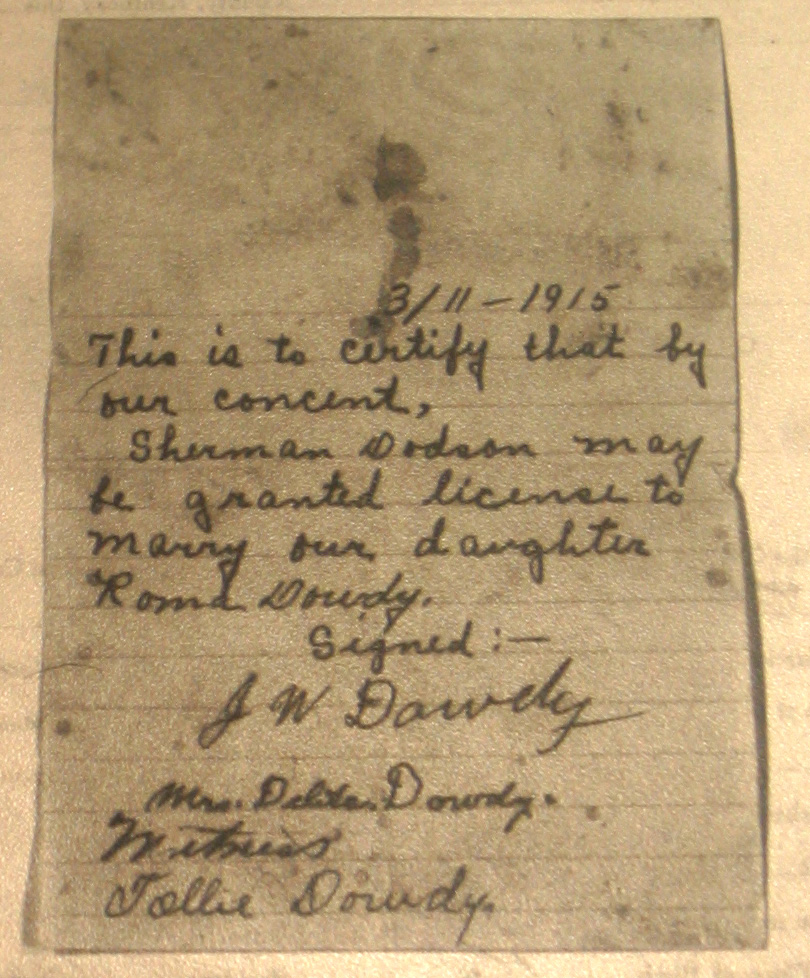 3/11-1915
This is to certify that by
our concent,
Sherman Dodson may
be granted license to
marry our daughter
Roma Dowdy.
Signed:-
J W Dowdy
Mrs. Dowdy.
Witness
Tollie Dowdy.